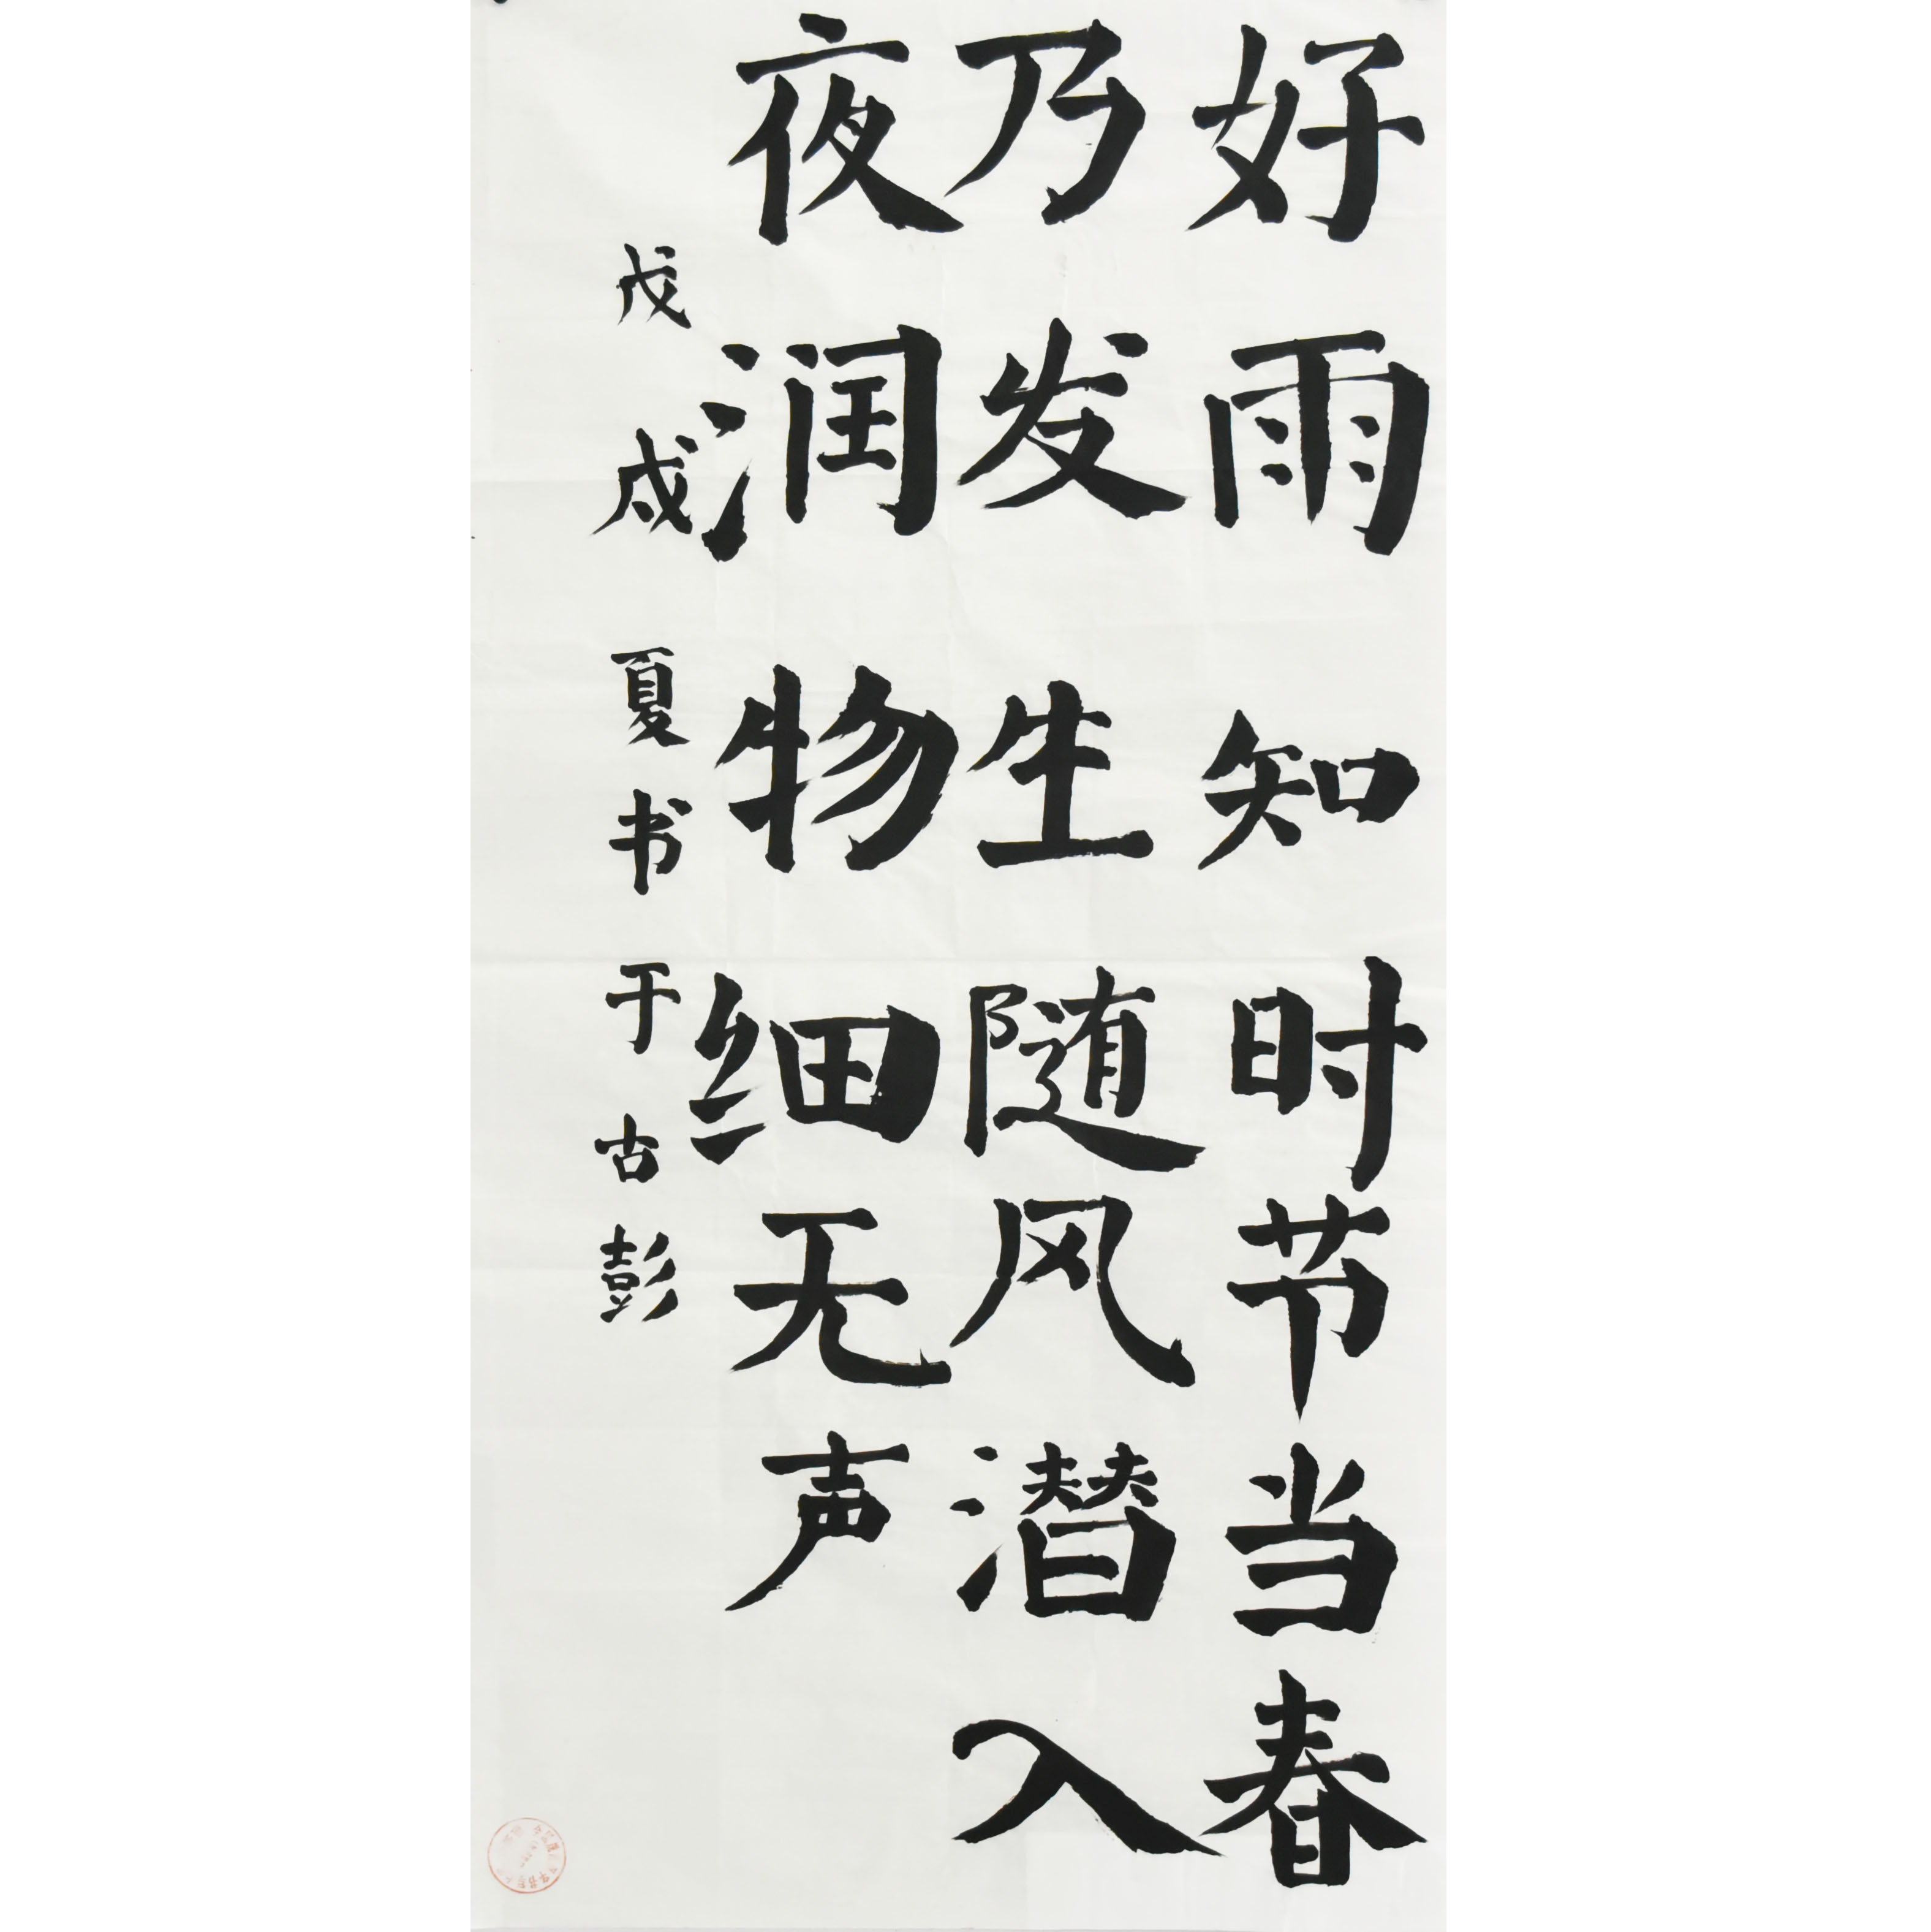 好雨知时节当春
乃发生随风潜入
夜润物细无声
戊戌夏书于古彭